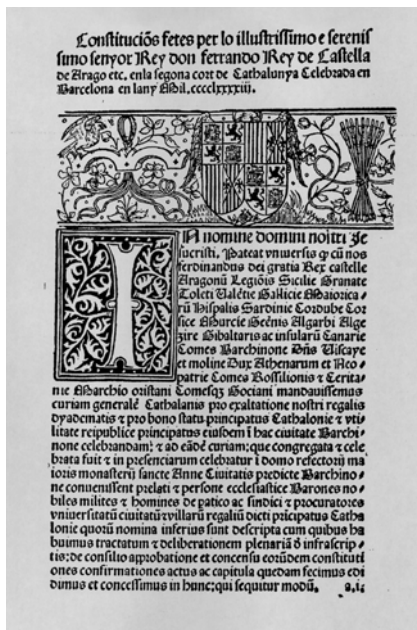 Constituciõs fetes per lo illustrissimo e serenis
simo senyor Rey don ferrando Rey de Castella
de Arago etc. enla segona cort de Cathalunya Celebrada en
Barcelona en lany Mil.cccclxxxxiii.
IN nomine domini nostri Je
sucristi. Pateat vniuersis ꝙ cũ nos
ferdinandus dei gratia Rex castelle
Aragonũ Legiõis Sicilie Granate
Toleti Valẽtie Gallicie Maiorica⸗
rũ Hispalis Sardinie Cordube Cor
sice Murcie Geẽnis Algarbi Alge
zire Gibaltaris ac insularũ Canarie
Comes Barchinone dñs Uiscaye
et moline Dux Athenarum et Neo
patrie Comes Rossilionis ⁊ Cerita⸗
nie Marchio oristani Comesqꝫ Gociani mandauissemus
curiam generalẽ Cathalanis pro exaltatione nostri regalis
dyadematis ⁊ pro bono statu principatus Cathalonie ⁊ vti⸗
litate reipublice principatus eiusdem ĩ hac ciuitate Barchi⸗
none celebrandam: ⁊ ad eãdẽ curiam: que congregata ⁊ cele
brata fuit ⁊ in presenciarum celebratur ĩ domo refectorii ma
ioris monasterii sancte Anne Ciuitatis predicte Barchino⸗
ne conuenissent prelati ⁊ persone ecclesiastice Barones no⸗
biles milites ⁊ homines de paratico ac sindici ⁊ procuratores
vniuersitatũ ciuitatũ ⁊ villarũ regaliũ dicti prĩcipatus Catha
lonie quorũ nomina inferius sunt descripta cum quibus ha
buimus tractatum ⁊ deliberationem plenariã ð infrascrip⸗
tis: de consilio approbatione et concensu eorũdem constituti
ones confirmationes actus ac capitula quedam fecimus edi
dimus et concessimus in hunc: qui sequitur modũ. a.ii